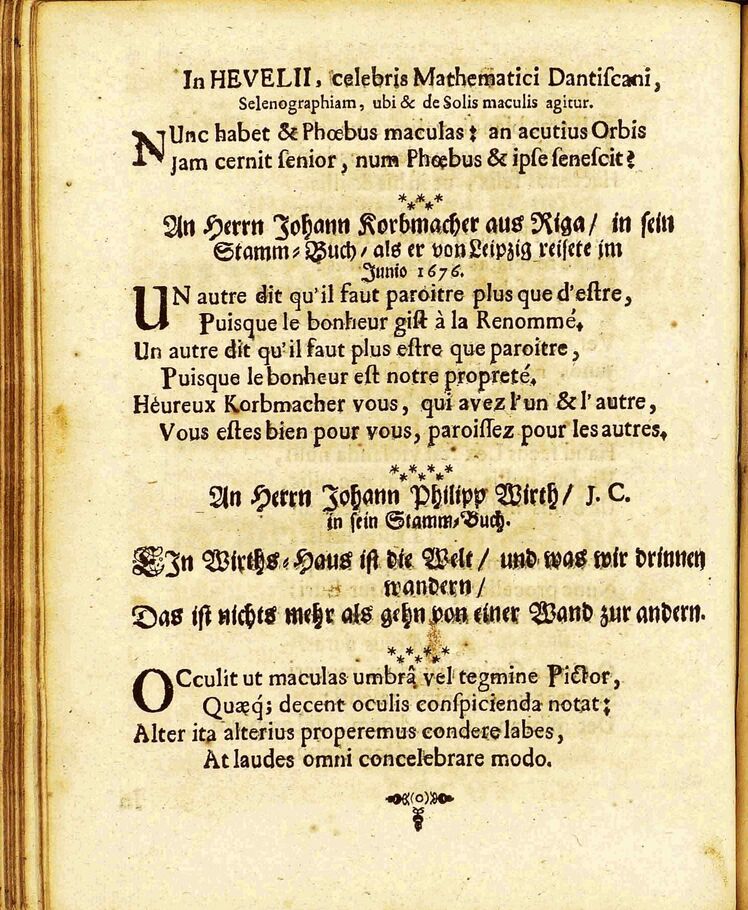 In HEVELII, celebris Mathematici Dantiſcani,
Selenographiam, ubi & de Solis maculis agitur.
NUnc habet & Phœbus maculas: an acutius Orbis
Jam cernit ſenior, num Phœbus & ipſe ſeneſcit?
*****
An Herrn Johann Korbmacher aus Riga/ in ſein
Stamm-Buch/ als er von Leipzig reiſete im
Junio 1676.
UN autre dit qu'il faut paroitre plus que d'eſtre,
Puisque le bonheur giſt à la Renommé.
Un autre dit qu'il faut plus eſtre que paroitre,
Puisque le bonheur eſt notre propreté.
Héureux Korbmacher vous, qui avez l'un & l'autre,
Vous eſtes bien pour vous, paroiſſez pour les autres.
******
An Herrn Johann Philipp Wirth/ J. C.
in ſein Stamm-Buch.
EIn Wirths-Haus iſt die Welt/ und was wir drinnen
wandern/
Das iſt nichts mehr als gehn von einer Wand zur andern.
******
OCculit ut maculas umbrâ vel tegmine Pictor,
Quæq́; decent oculis conſpicienda notat:
Alter ita alterius properemus condere labes,
At laudes omni concelebrare modo.